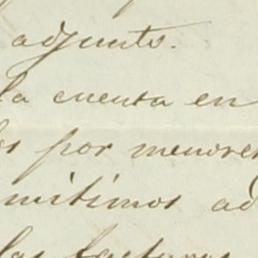 adjunto.
la cuenta en
os por menores
mitimos ad
las facturas